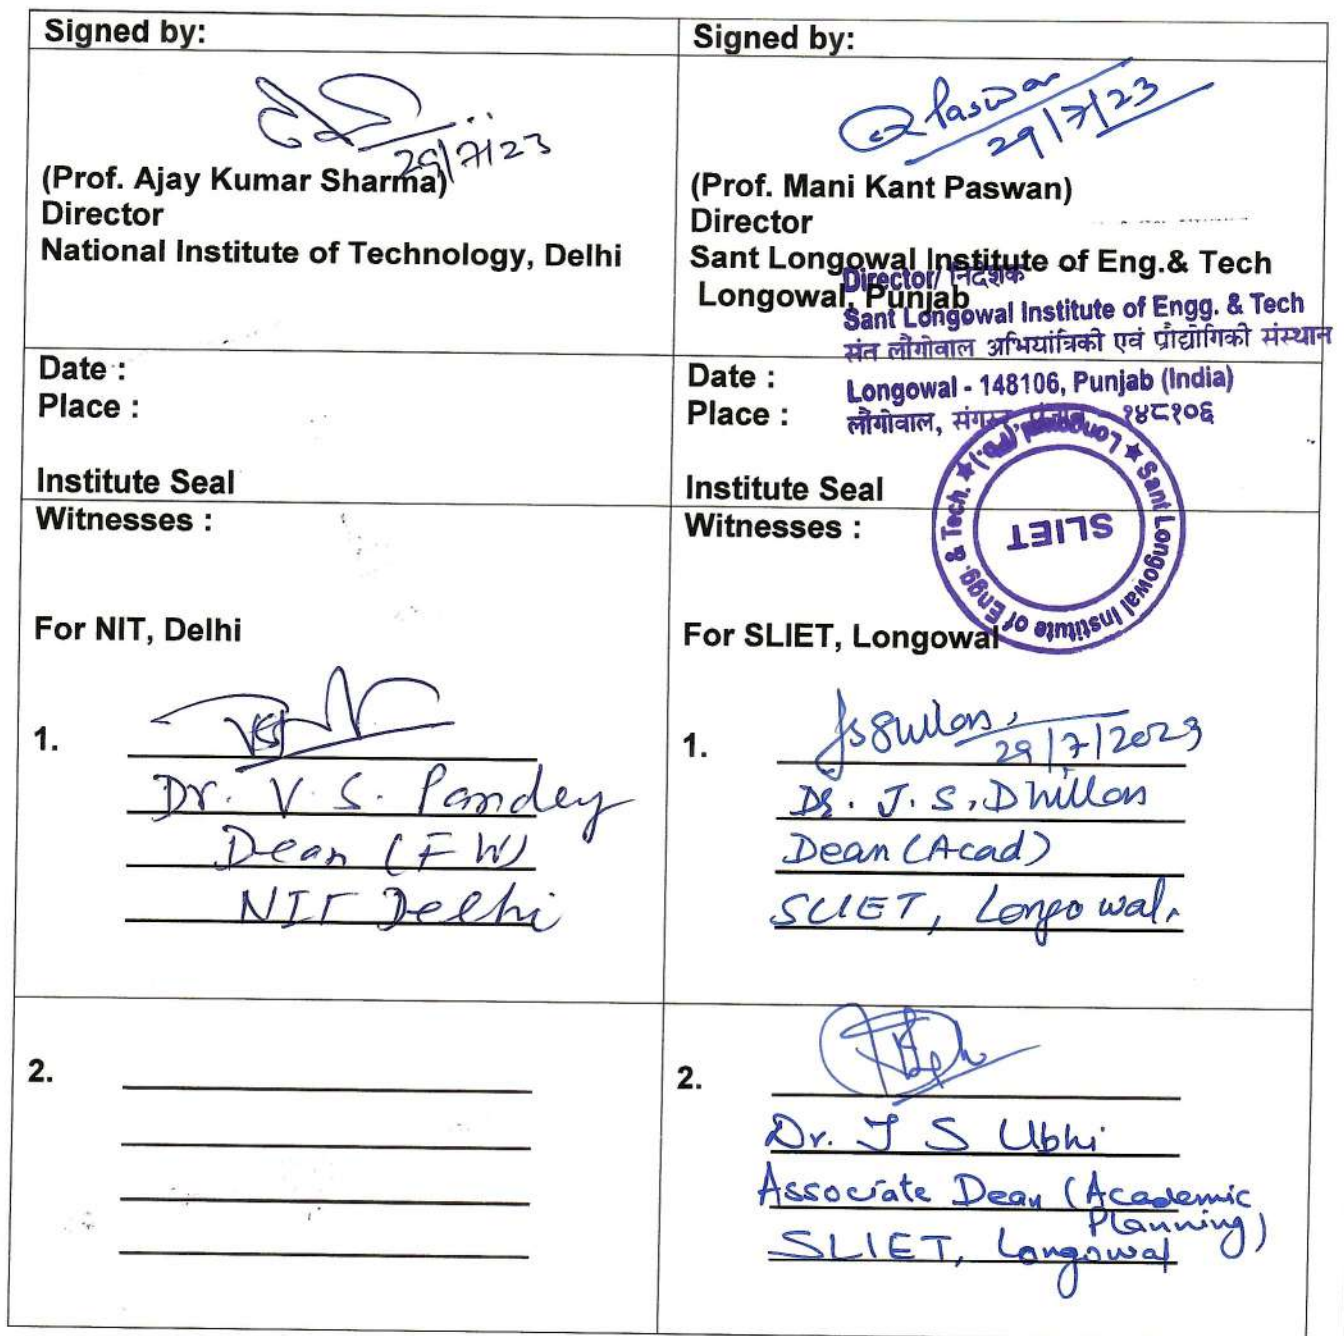 Signed by:
29/7/23
(Prof. Ajay Kumar Sharma)
Director
National Institute of Technology, Delhi
Date :
Place :
Institute Seal
Witnesses :
For NIT, Delhi
1.
Dr. V. S. Pandey
Dean (FW)
NIT Delhi
2.
Signed by:
Paswan
29/7/23
(Prof. Mani Kant Paswan)
Director
Sant Longowal Institute of Eng.& Tech
Longowal, Punjab
Director/ निदेशक
Sant Longowal Institute of Engg. & Tech
संत लौंगोवाल अभियांत्रिकी एवं प्रौद्योगिकी संस्थान
Date :
Longowal - 148106, Punjab (India)
Place :
लौंगोवाल, संगरूर, पंजाब १४८१०६
Institute Seal
Sant Longowal Institute of Engg. & Tech. ★ Longowal, (Pb.) ★
SLIET
Witnesses :
For SLIET, Longowal
1.
29/7/2023
Dr. J. S. Dhillon
Dean (Acad)
SLIET, Longowal.
2.
Dr. J S Ubhi
Associate Dean (Academic
Planning)
SLIET, Longowal